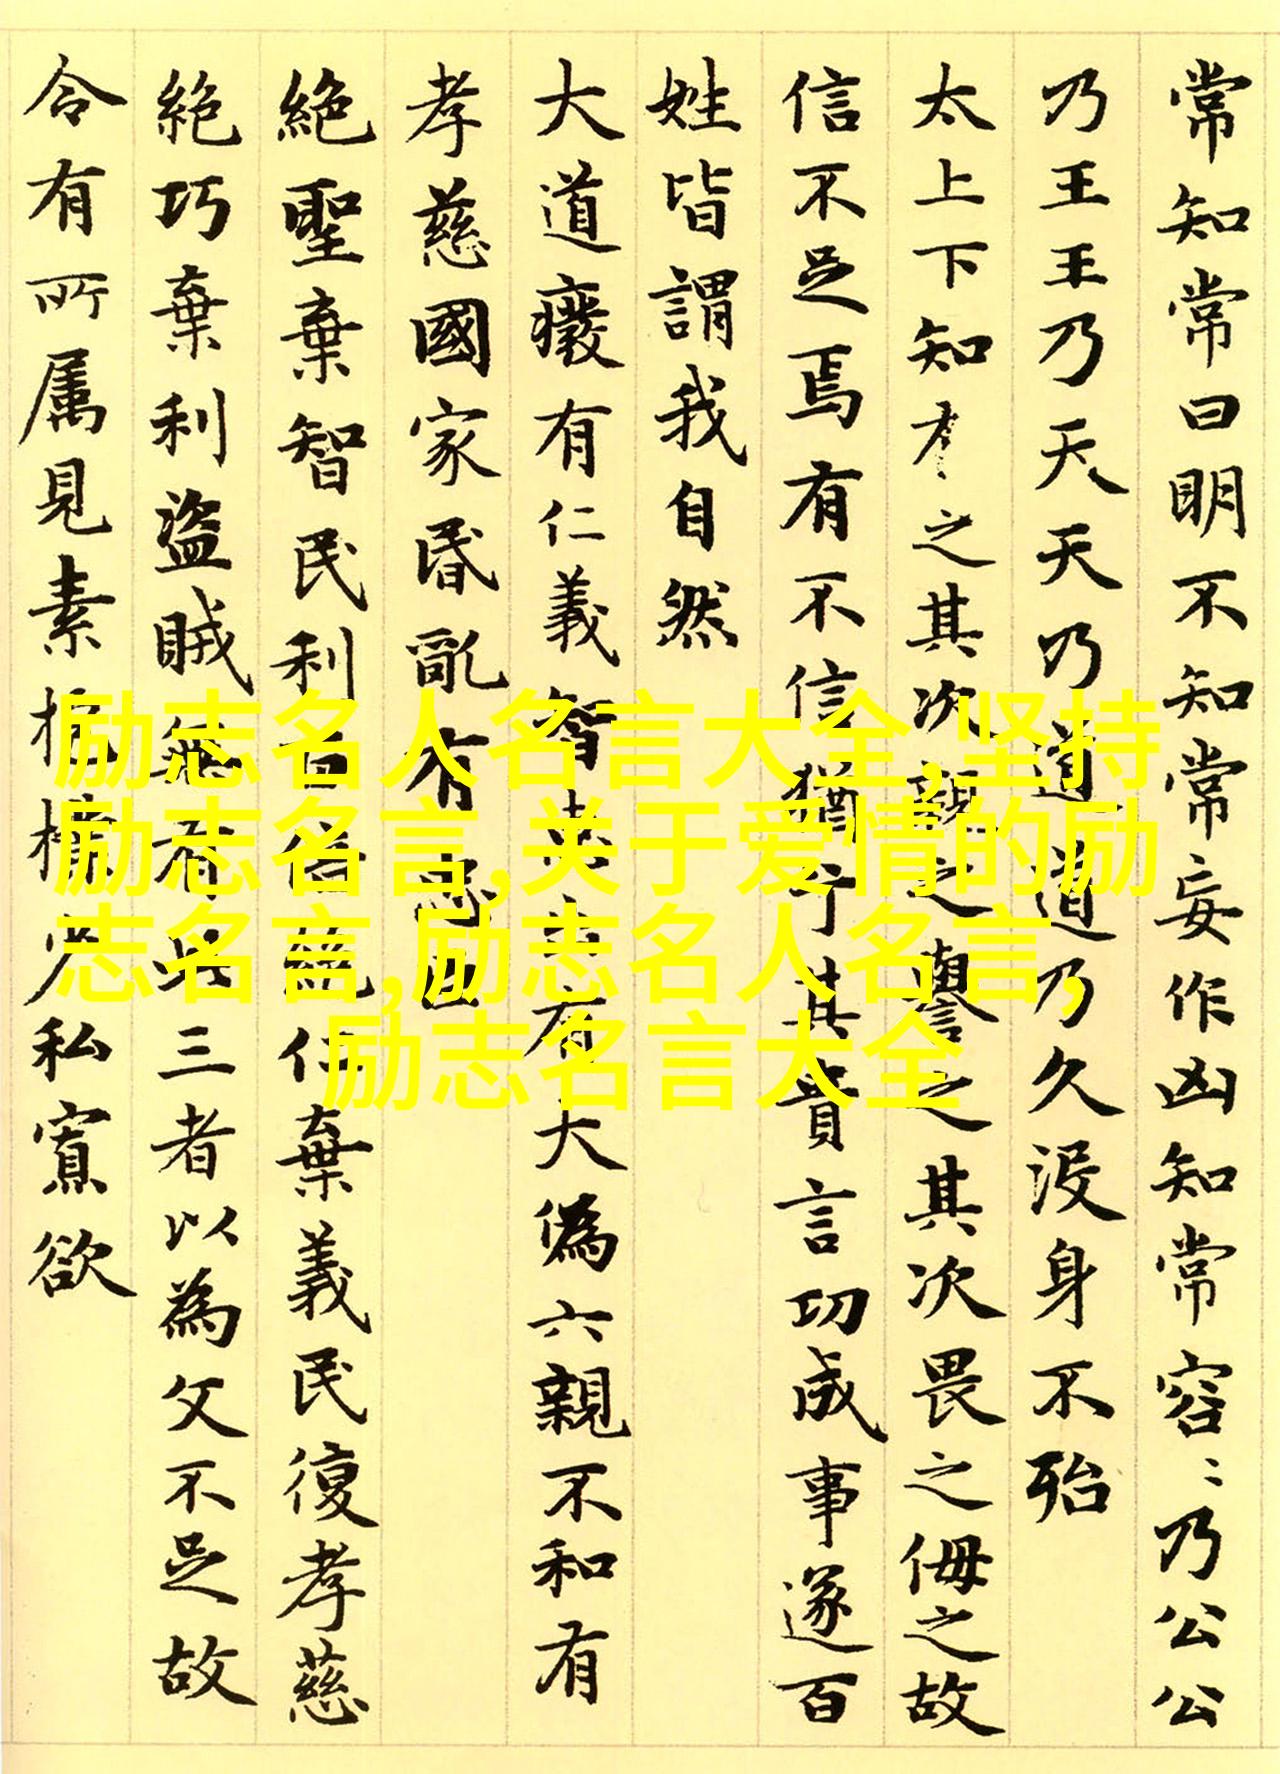 常知常曰明不知常妄作凶知常容〻乃公公
乃王王乃天天乃道道乃久沒身不殆
太上下知有之其次親之譽之其次畏之侮之故
信不足焉有不信猶兮其貴言功成事遂百
姓皆謂我自然
大道癈有仁義智惠出有大偽六親不和有
孝慈國家昬亂有忠臣
絕聖棄智民利百倍絕仁棄義民復孝慈
絕巧棄利盜賊無有此三者以為文不足故
令有所属見素抱樸少私寡欲
励志名人名言大全,坚持
励志名言,关于爱情的励
志名言,励志名人名言,
励志名言大全